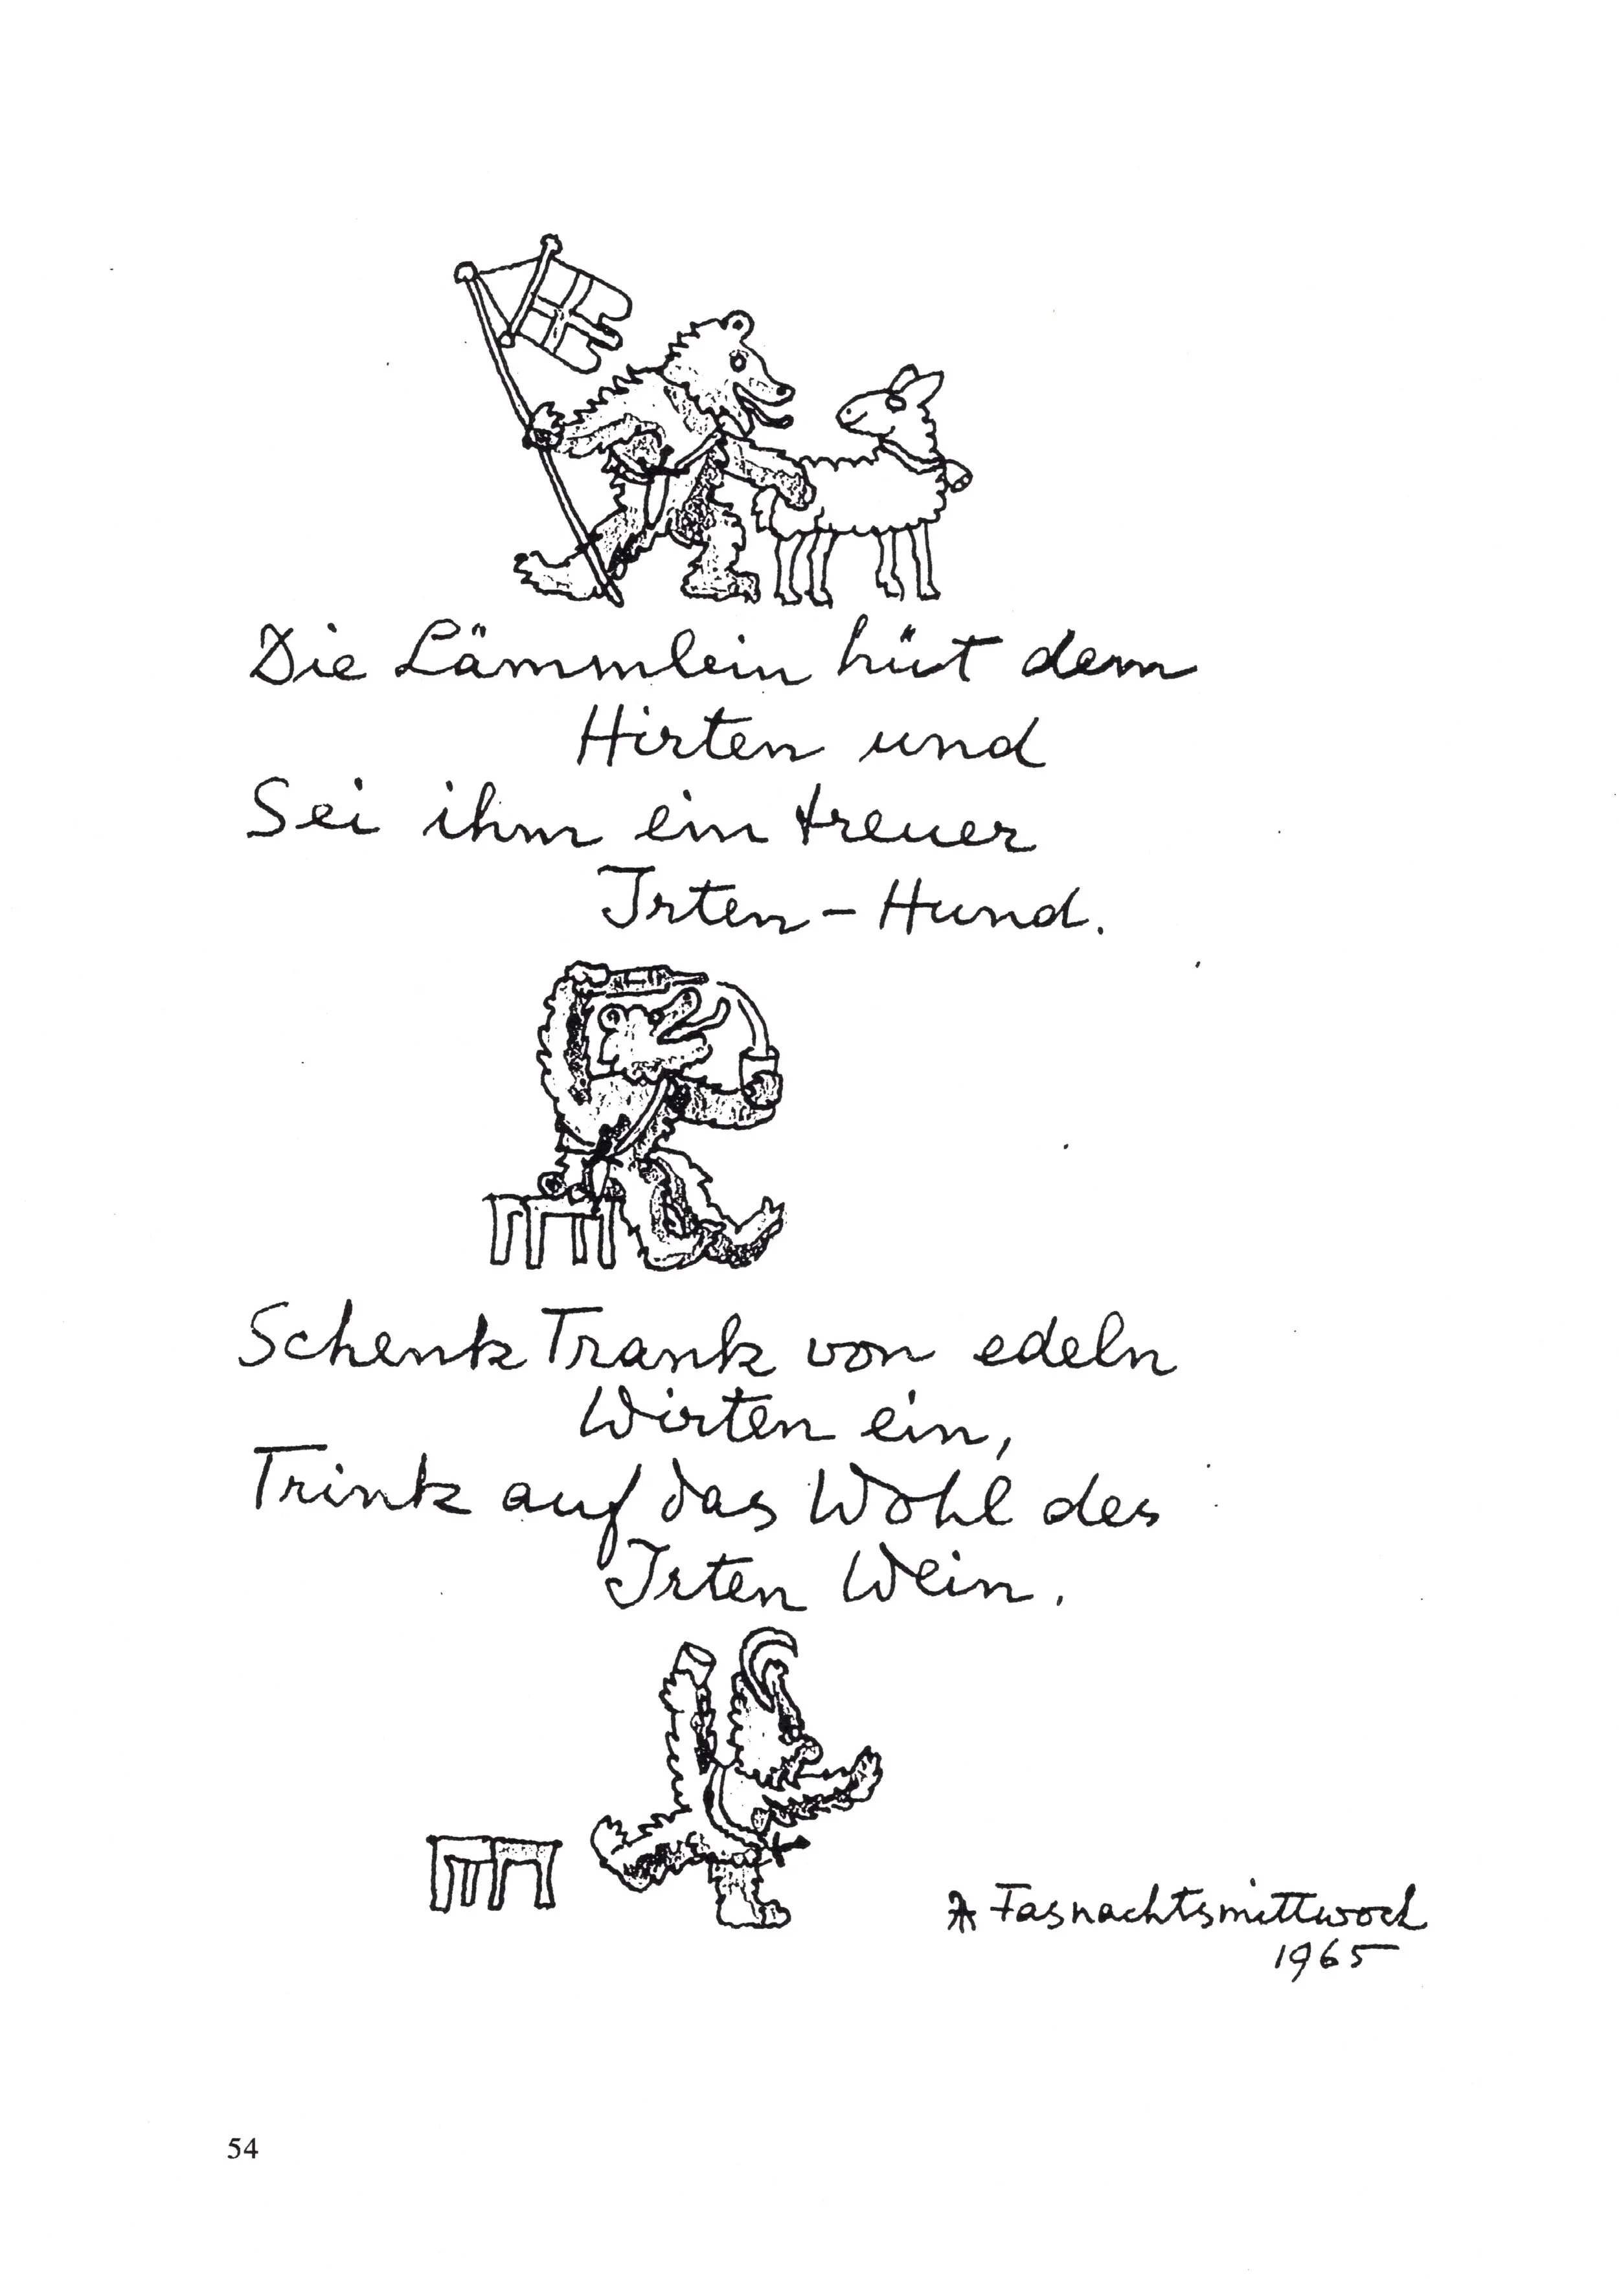 Die Lämmlein hüt dem
Hirten und
Sei ihm ein treuer
Irten-Hund.
Schenk Trank von edeln
Wirten ein,
Trink auf das Wohl des
Irten Wein.
Fasnachtsmittwoch
1965
54